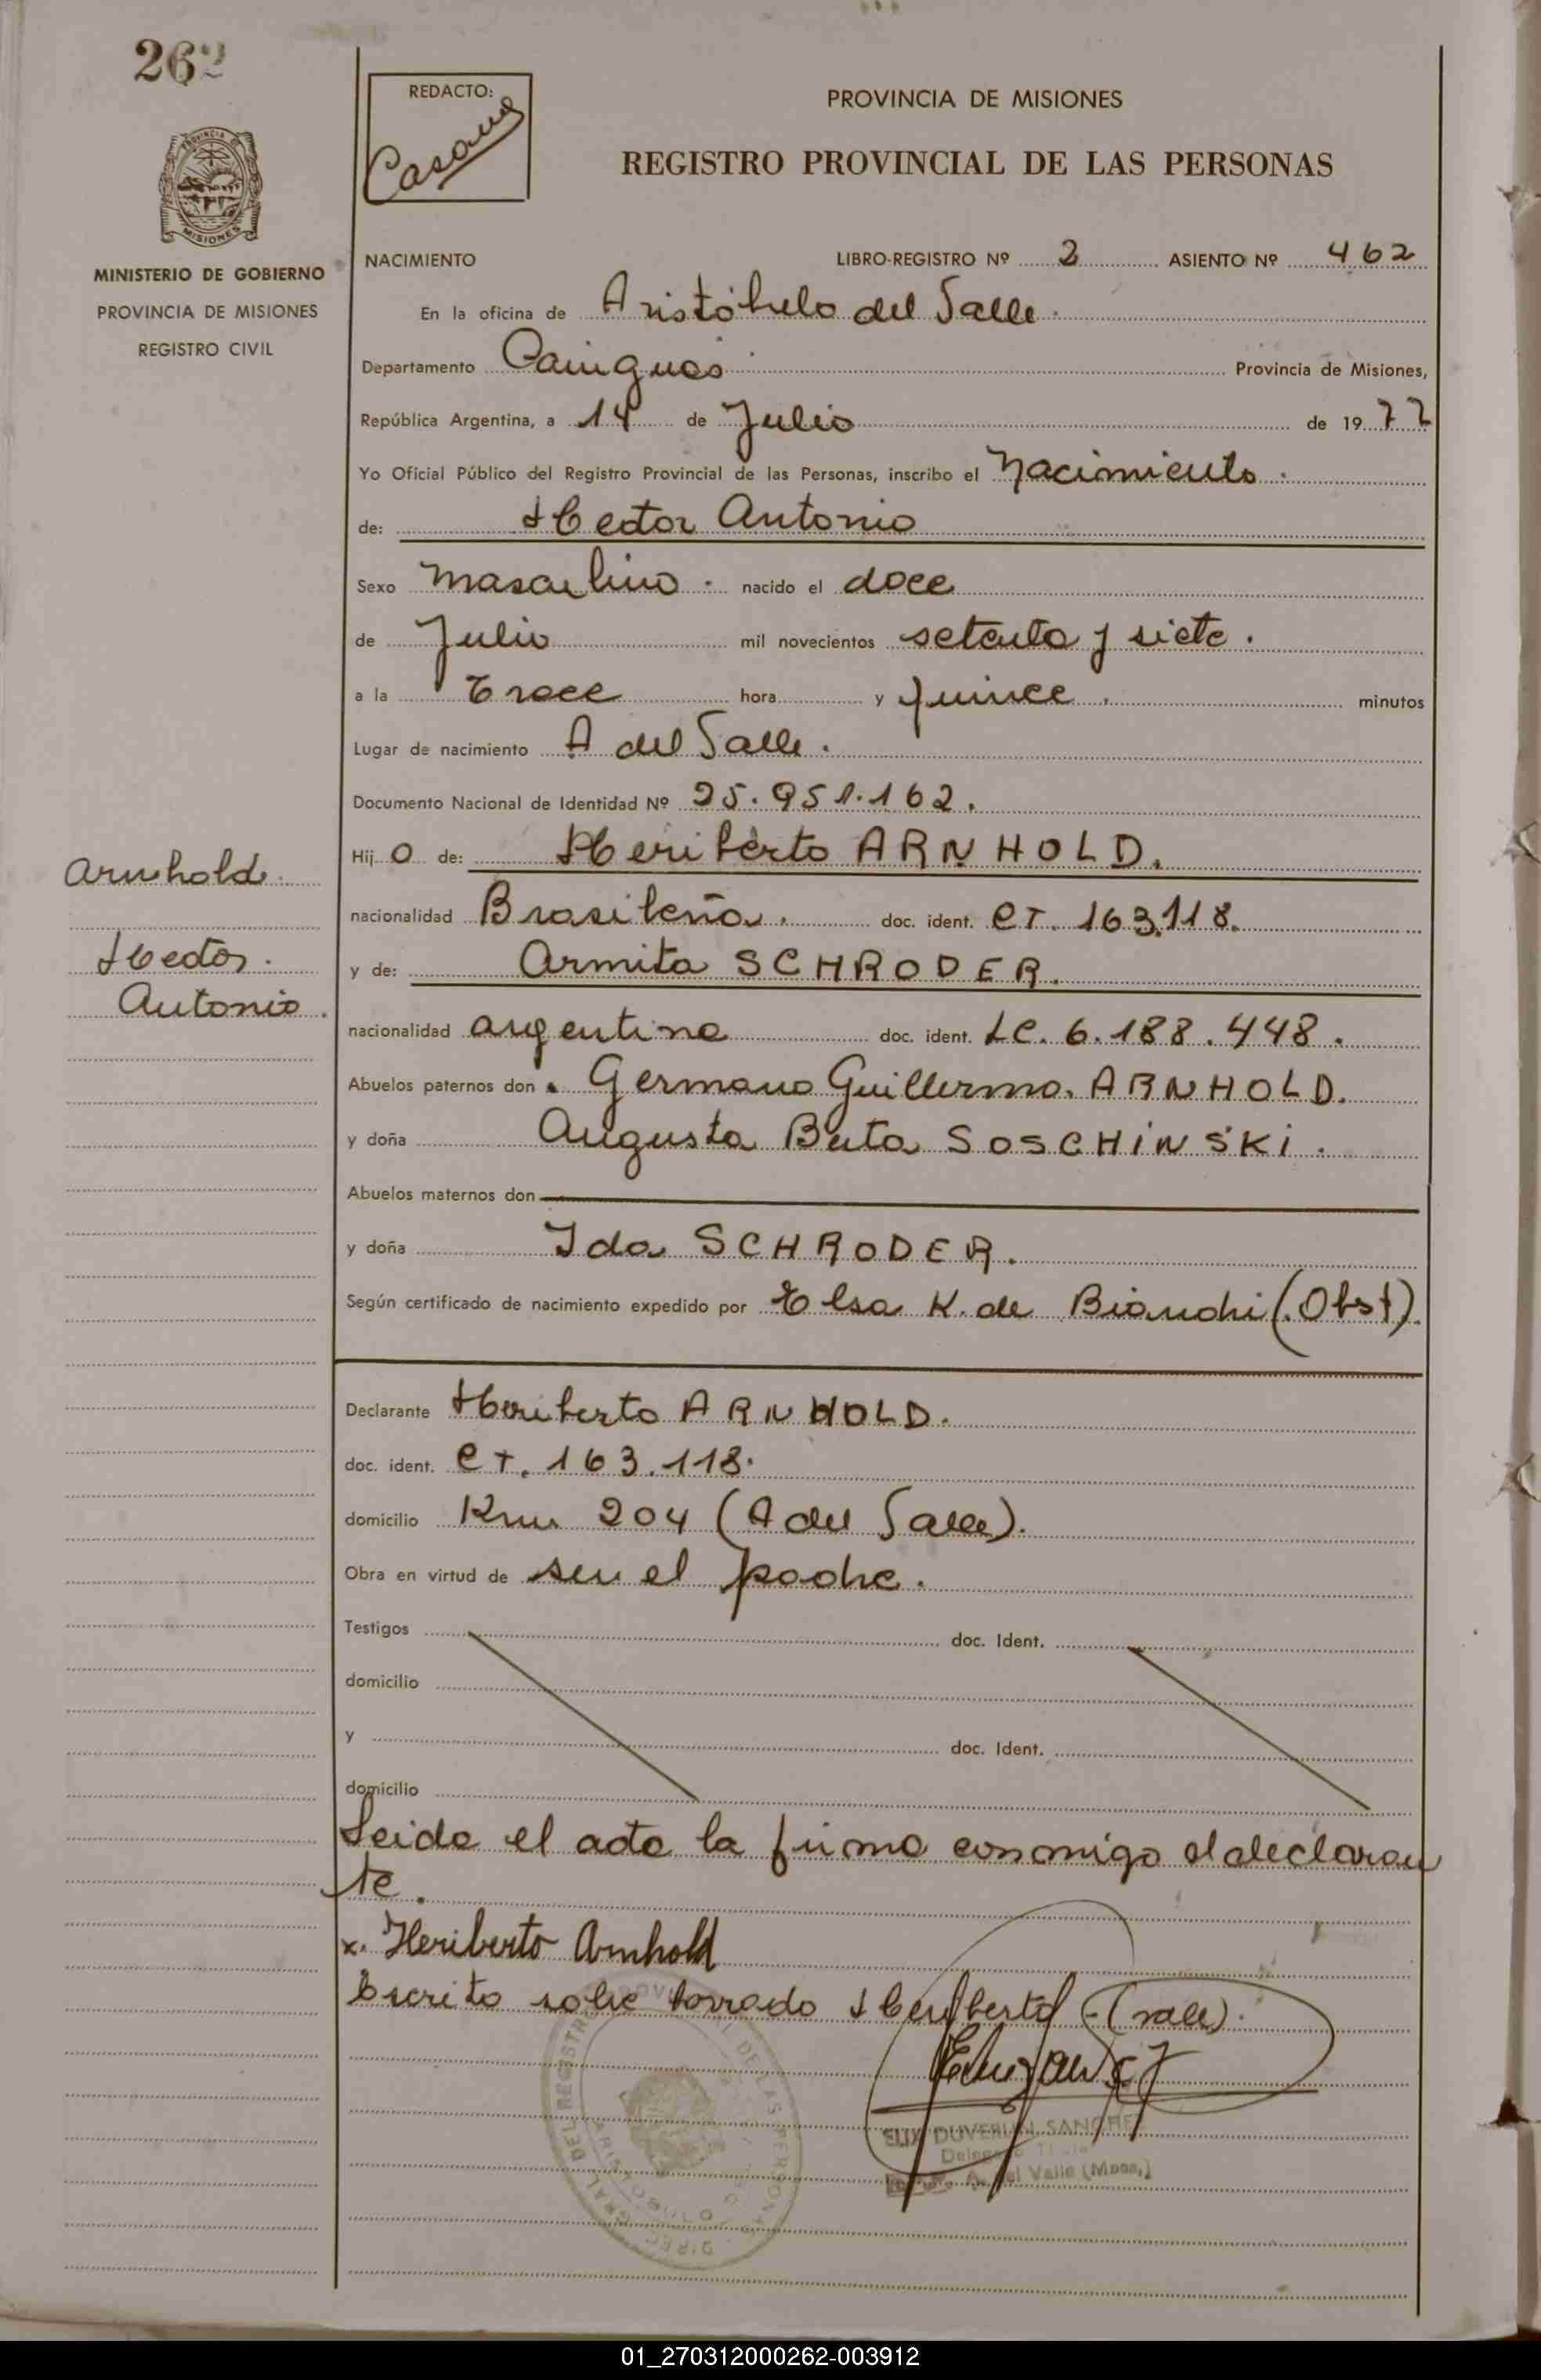 262
REDACTO:
Casano
PROVINCIA DE MISIONES
REGISTRO PROVINCIAL DE LAS PERSONAS
MISIONES
MINISTERIO DE GOBIERNO
PROVINCIA DE MISIONES
REGISTRO CIVIL
NACIMIENTO LIBRO-REGISTRO Nº 2 ASIENTO Nº 462
En la oficina de Aristóbulo del Valle.
Departamento Cainguas Provincia de Misiones,
República Argentina, a 14 de Julio de 1977
Yo Oficial Público del Registro Provincial de las Personas, inscribo el Nacimiento.
de: Hector Antonio
Sexo masculino. nacido el doce
de Julio mil novecientos setenta y siete.
a la Trece hora y quince. minutos
Lugar de nacimiento A del Valle.
Documento Nacional de Identidad Nº 25.951.162.
Hijo de: Heriberto ARNHOLD.
nacionalidad Brasileña. doc. ident. CI. 163.118.
y de: Armita SCHRODER.
nacionalidad argentina doc. ident. LC. 6.188.448.
Abuelos paternos don Germano Guillermo. ARNHOLD.
y doña Augusta Berta SOSCHINSKI.
Abuelos maternos don
y doña Ida SCHRODER.
Según certificado de nacimiento expedido por Elsa K. de Bianchi (Obst).
Arnhold.
Hector.
Antonio.
Declarante Heriberto ARNHOLD.
doc. ident. CI. 163.118.
domicilio Km 204 (A del Valle).
Obra en virtud de ser el padre.
Testigos doc. Ident.
domicilio
y doc. Ident.
domicilio
Leida el acta la firma conmigo el declaran
te.
x. Heriberto Arnhold
Escrito sobre borrado Heriberto - (vale).
DUVERLIN SANCHEZ
A. del Valle (Mnes.)
01_270312000262-003912